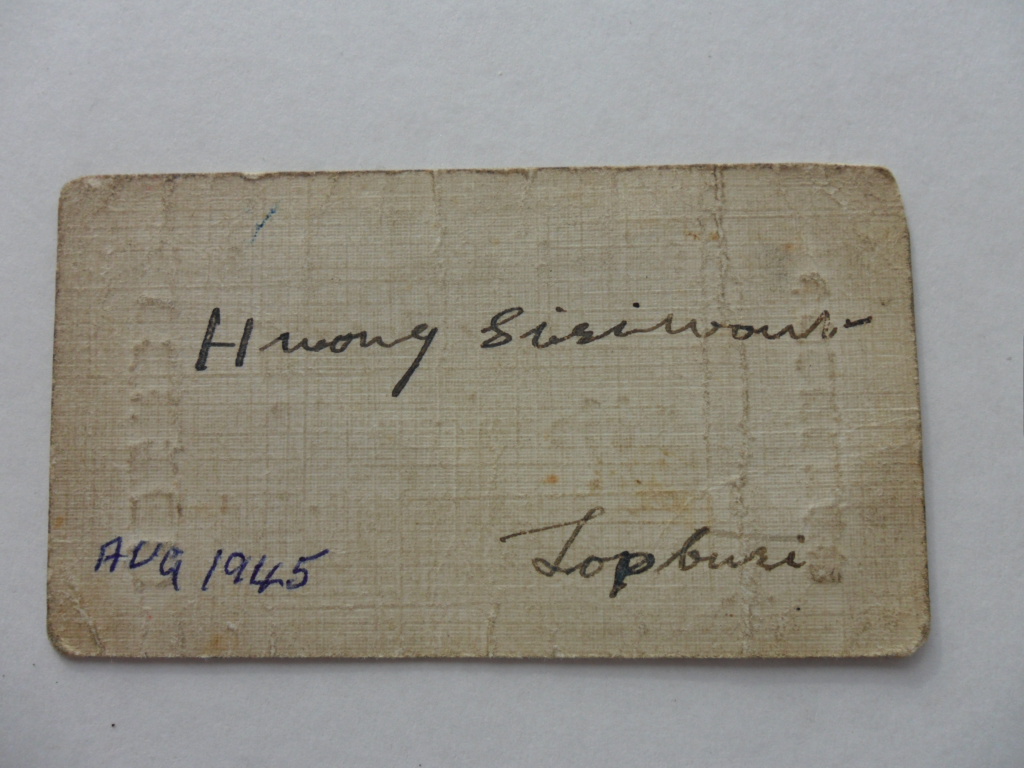 Hwong Sisiwout
AUG 1945
Lopburi